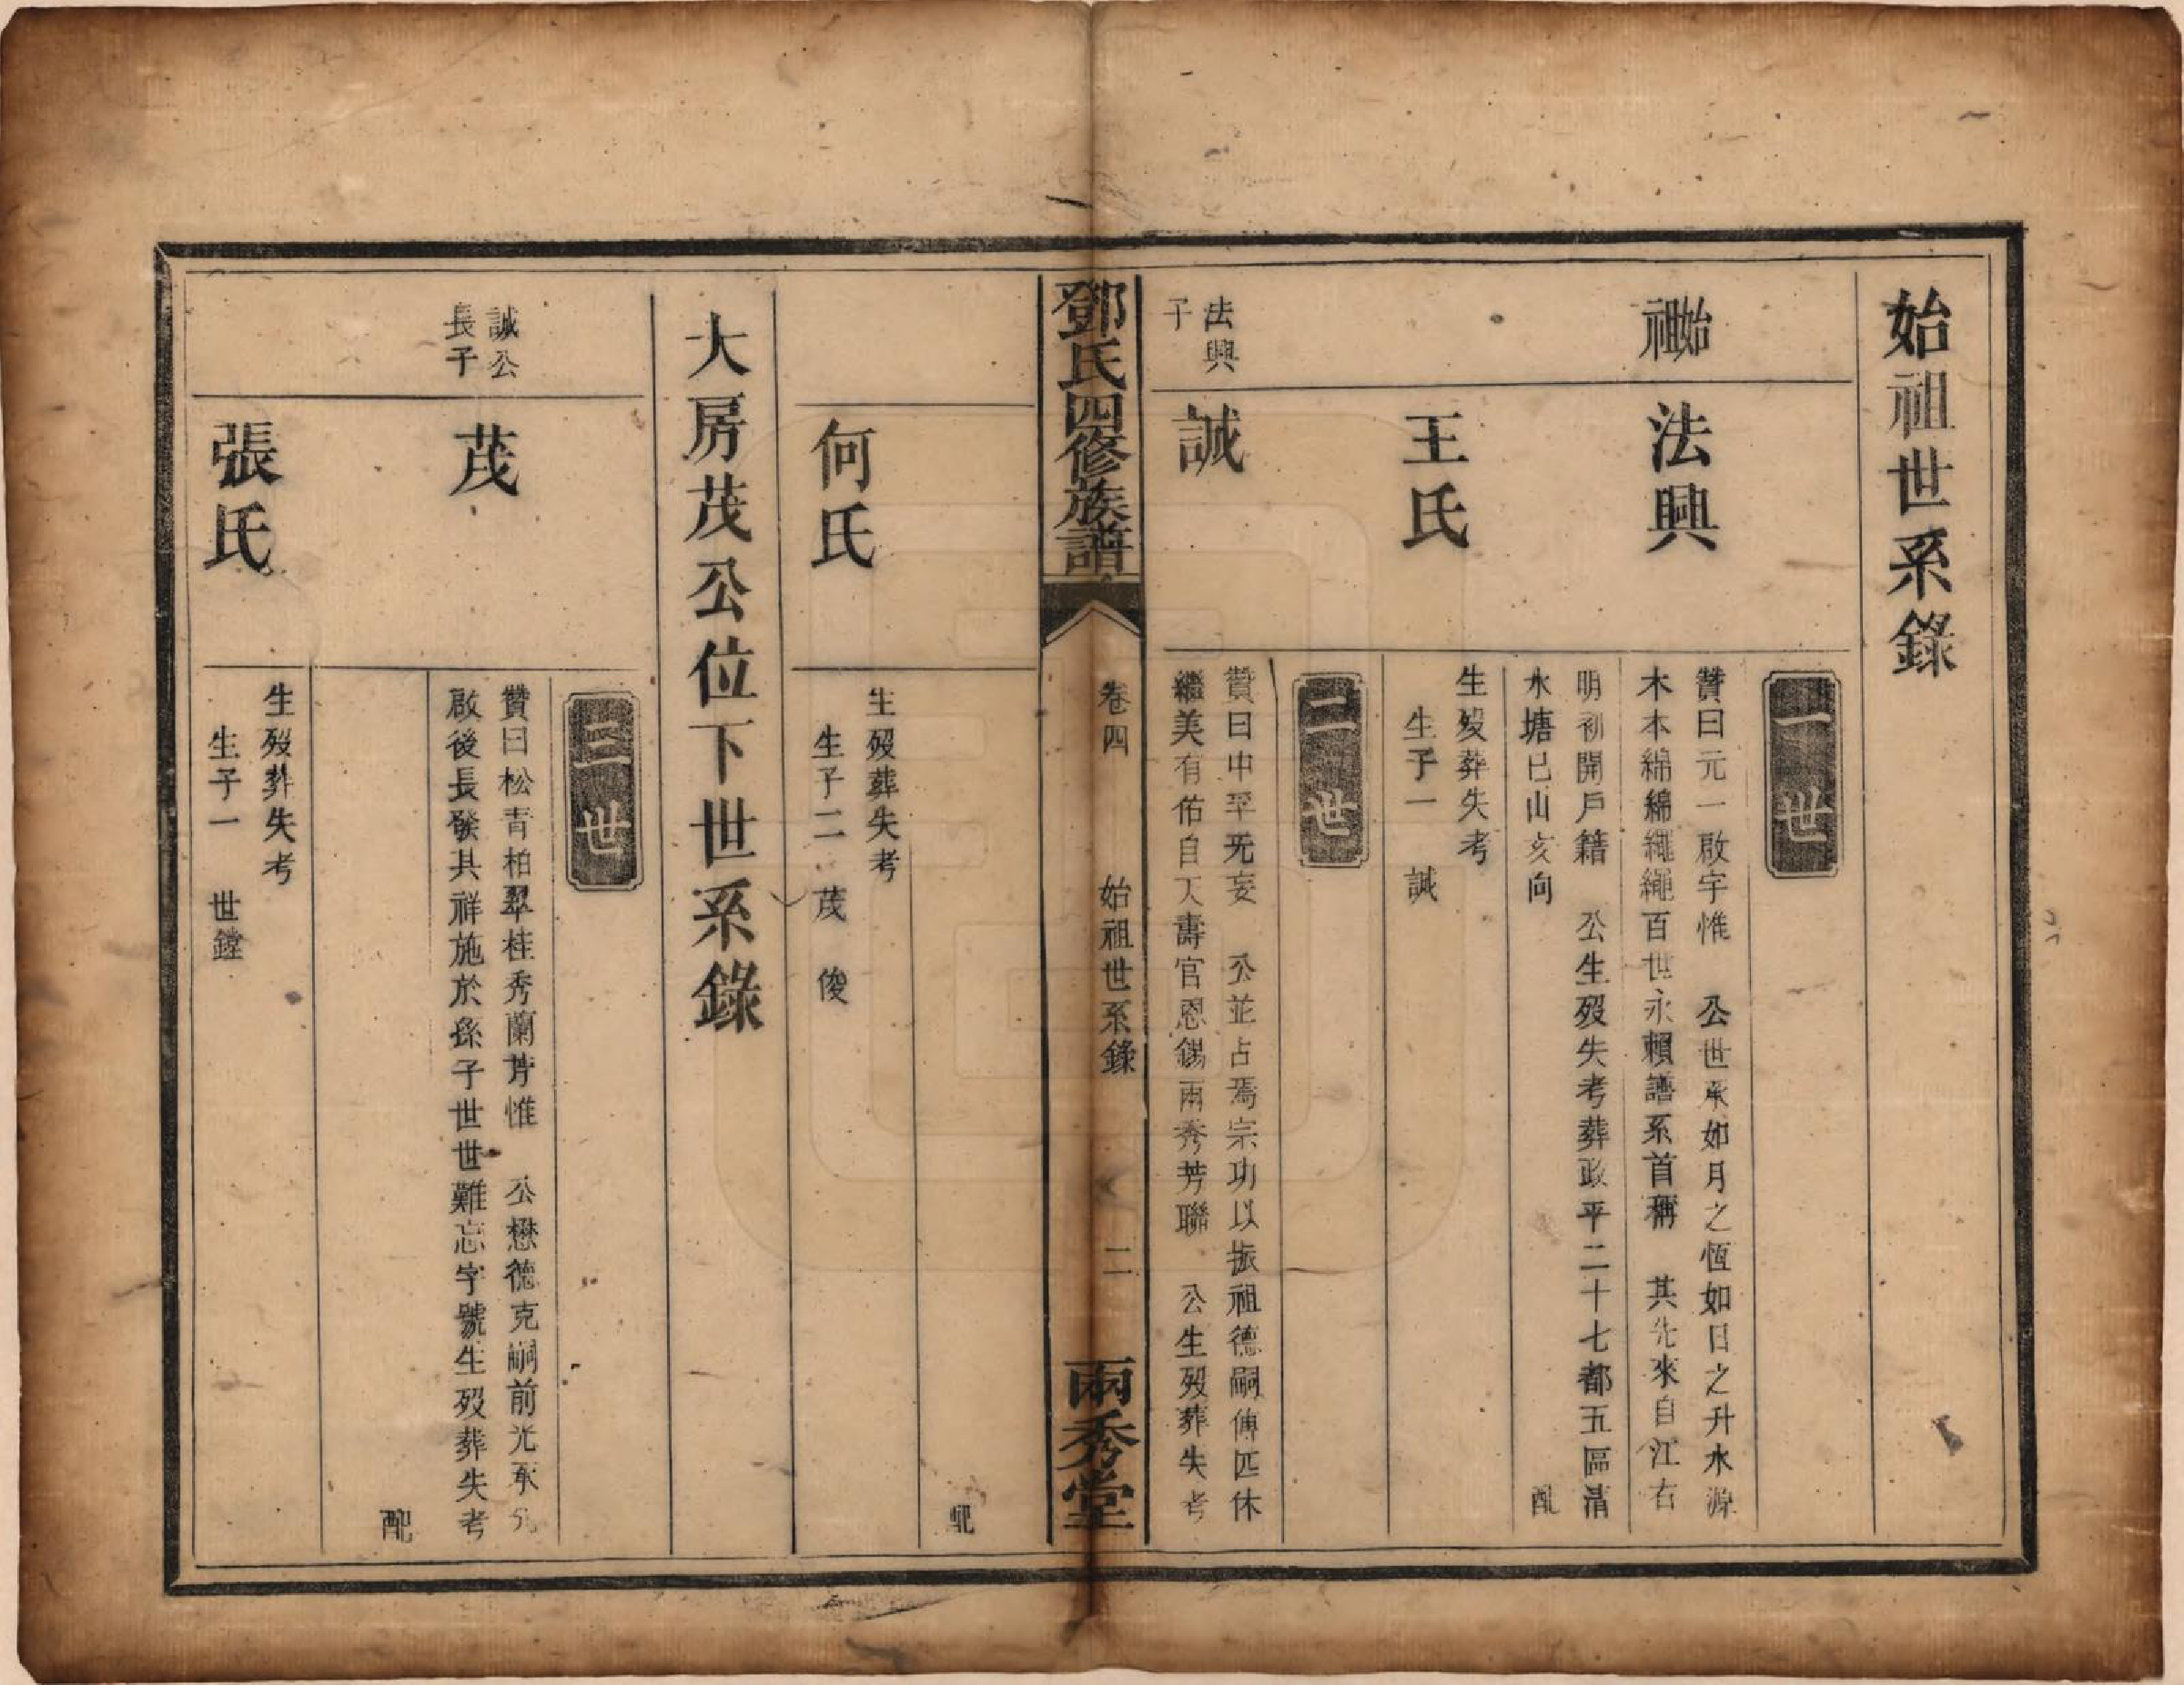 始祖世系錄
一世
始祖
法興
贊曰元一啟字惟　公世承如月之恆如日之升水源
木本綿綿繩繩百世永賴譜系首稱　其先來自江右
明初開戶籍　公生歿失考葬政平二十七都五區清
水塘巳山亥向　配
王氏
生歿葬失考
生子一　誠
二世
法興
子
誠
贊曰中孚旡妄　公並占焉宗功以振祖德嗣傳匹休
繼美有佑自天壽官恩錫兩秀芳聯　公生歿葬失考
鄧氏四修族譜
卷四　始祖世系錄　二
兩秀堂
配
何氏
生歿葬失考
生子二　茂　俊
大房茂公位下世系錄
三世
誠公
長子
茂
贊曰松青柏翠桂秀蘭芳惟　公懋德克嗣前光承先
啟後長發其祥施於孫子世世難忘字號生歿葬失考
配
張氏
生歿葬失考
生子一　世鏜